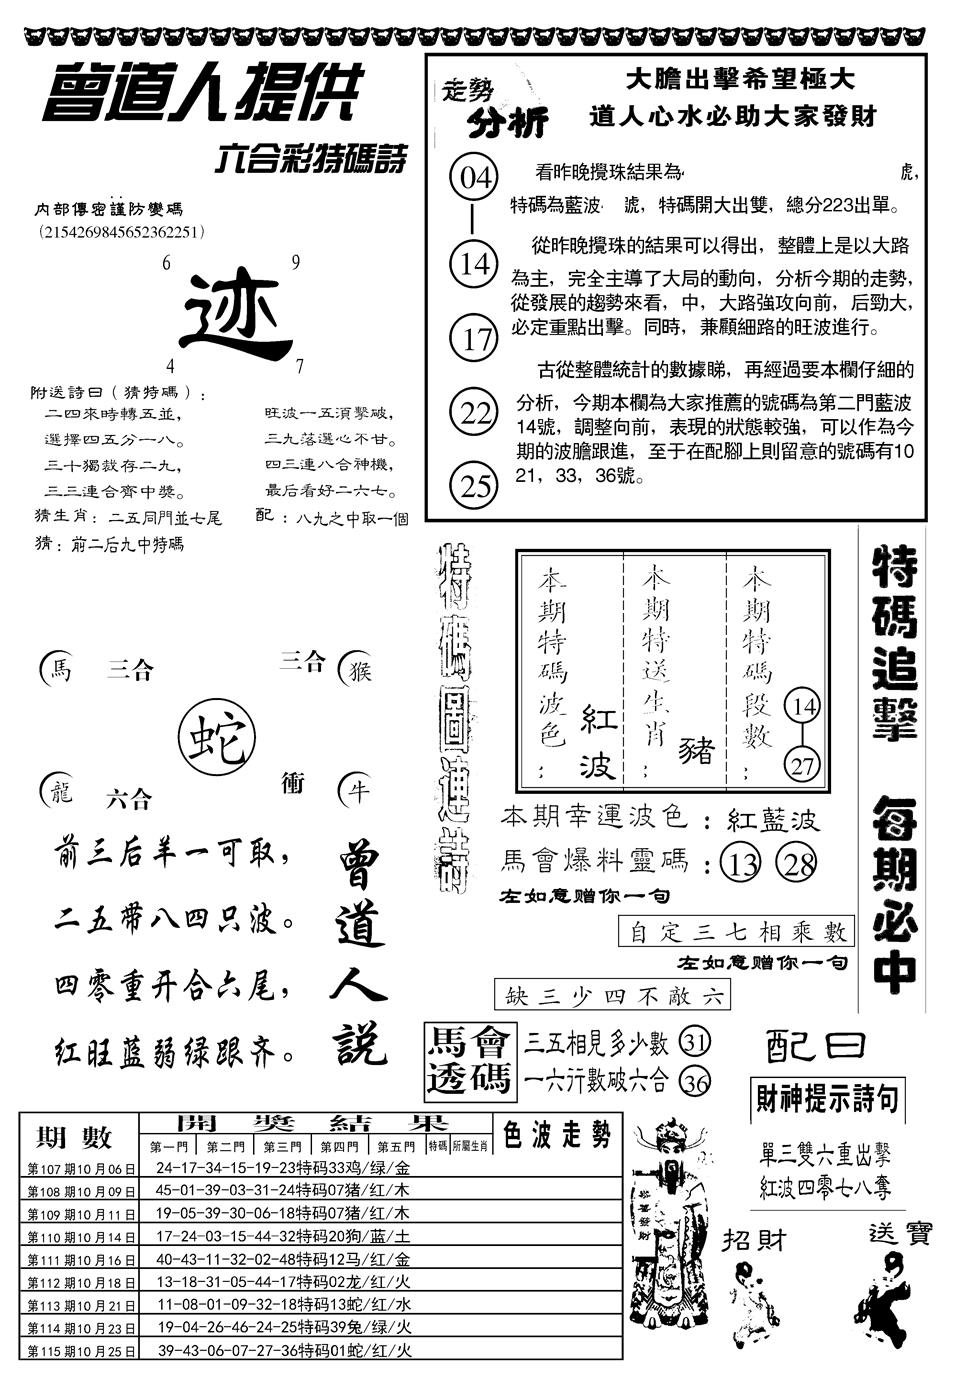 曾道人提供
六合彩特碼詩
内部傳密謹防變碼
(2154269845652362251)
6 9
迹
4 7
附送詩曰(猜特碼):
二四來時轉五並, 旺波一五須擊破,
選擇四五分一八。 三九落選心不甘。
三十獨裁存二九, 四三連八合神機,
三三連合齊中獎。 最后看好二六七。
猜生肖:二五同門並七尾 配:八九之中取一個
猜:前二后九中特碼
走勢
分析
大膽出擊希望極大
道人心水必助大家發財
04
14
17
22
25
看昨晚攪珠結果為 虎,
特碼為藍波 號,特碼開大出雙,總分223出單。
從昨晚攪珠的結果可以得出,整體上是以大路
為主,完全主導了大局的動向,分析今期的走勢,
從發展的趨勢來看,中,大路強攻向前,后勁大,
必定重點出擊。同時,兼顧細路的旺波進行。
古從整體統計的數據睇,再經過要本欄仔細的
分析,今期本欄為大家推薦的號碼為第二門藍波
14號,調整向前,表現的狀態較強,可以作為今
期的波膽跟進,至于在配腳上則留意的號碼有10
21,33,36號。
馬 三合 三合 猴
蛇
龍 六合 衝 牛
前三后羊一可取,
二五带八四只波。
四零重开合六尾,
红旺蓝弱绿跟齐。
曾道人説
特碼圖連詩
本期特碼波色:
紅波
本期特送生肖:
豬
本期特碼段數:
14
27
本期幸運波色:紅藍波
馬會爆料靈碼:13 28
左如意赠你一句
自定三七相乘數
左如意赠你一句
缺三少四不敵六
特碼追擊 每期必中
馬會透碼
三五相見多少數 31
一六行數破六合 36
配曰
財神提示詩句
單三雙六重出擊
紅波四零七八奪
恭喜發財
招財
送寶
期數 開獎結果 色波走勢
第一門 第二門 第三門 第四門 第五門 特碼 所屬生肖
第107期10月06日 24-17-34-15-19-23特码33鸡/绿/金
第108期10月09日 45-01-39-03-31-24特码07猪/红/木
第109期10月11日 19-05-39-30-06-18特码07猪/红/木
第110期10月14日 17-24-03-15-44-32特码20狗/蓝/土
第111期10月16日 40-43-11-32-02-48特码12马/红/金
第112期10月18日 13-18-31-05-44-17特码02龙/红/火
第113期10月21日 11-08-01-09-32-18特码13蛇/红/水
第114期10月23日 19-04-26-46-24-25特码39兔/绿/火
第115期10月25日 39-43-06-07-27-36特码01蛇/红/火